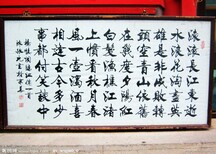 滚滚長江東逝
水浪花淘盡英
雄是非成敗轉
頭空青山依舊
在幾度夕陽紅
白髮漁樵江渚
上慣看秋月春
風一壺濁酒喜
相逢古今多少
事都付笑談中